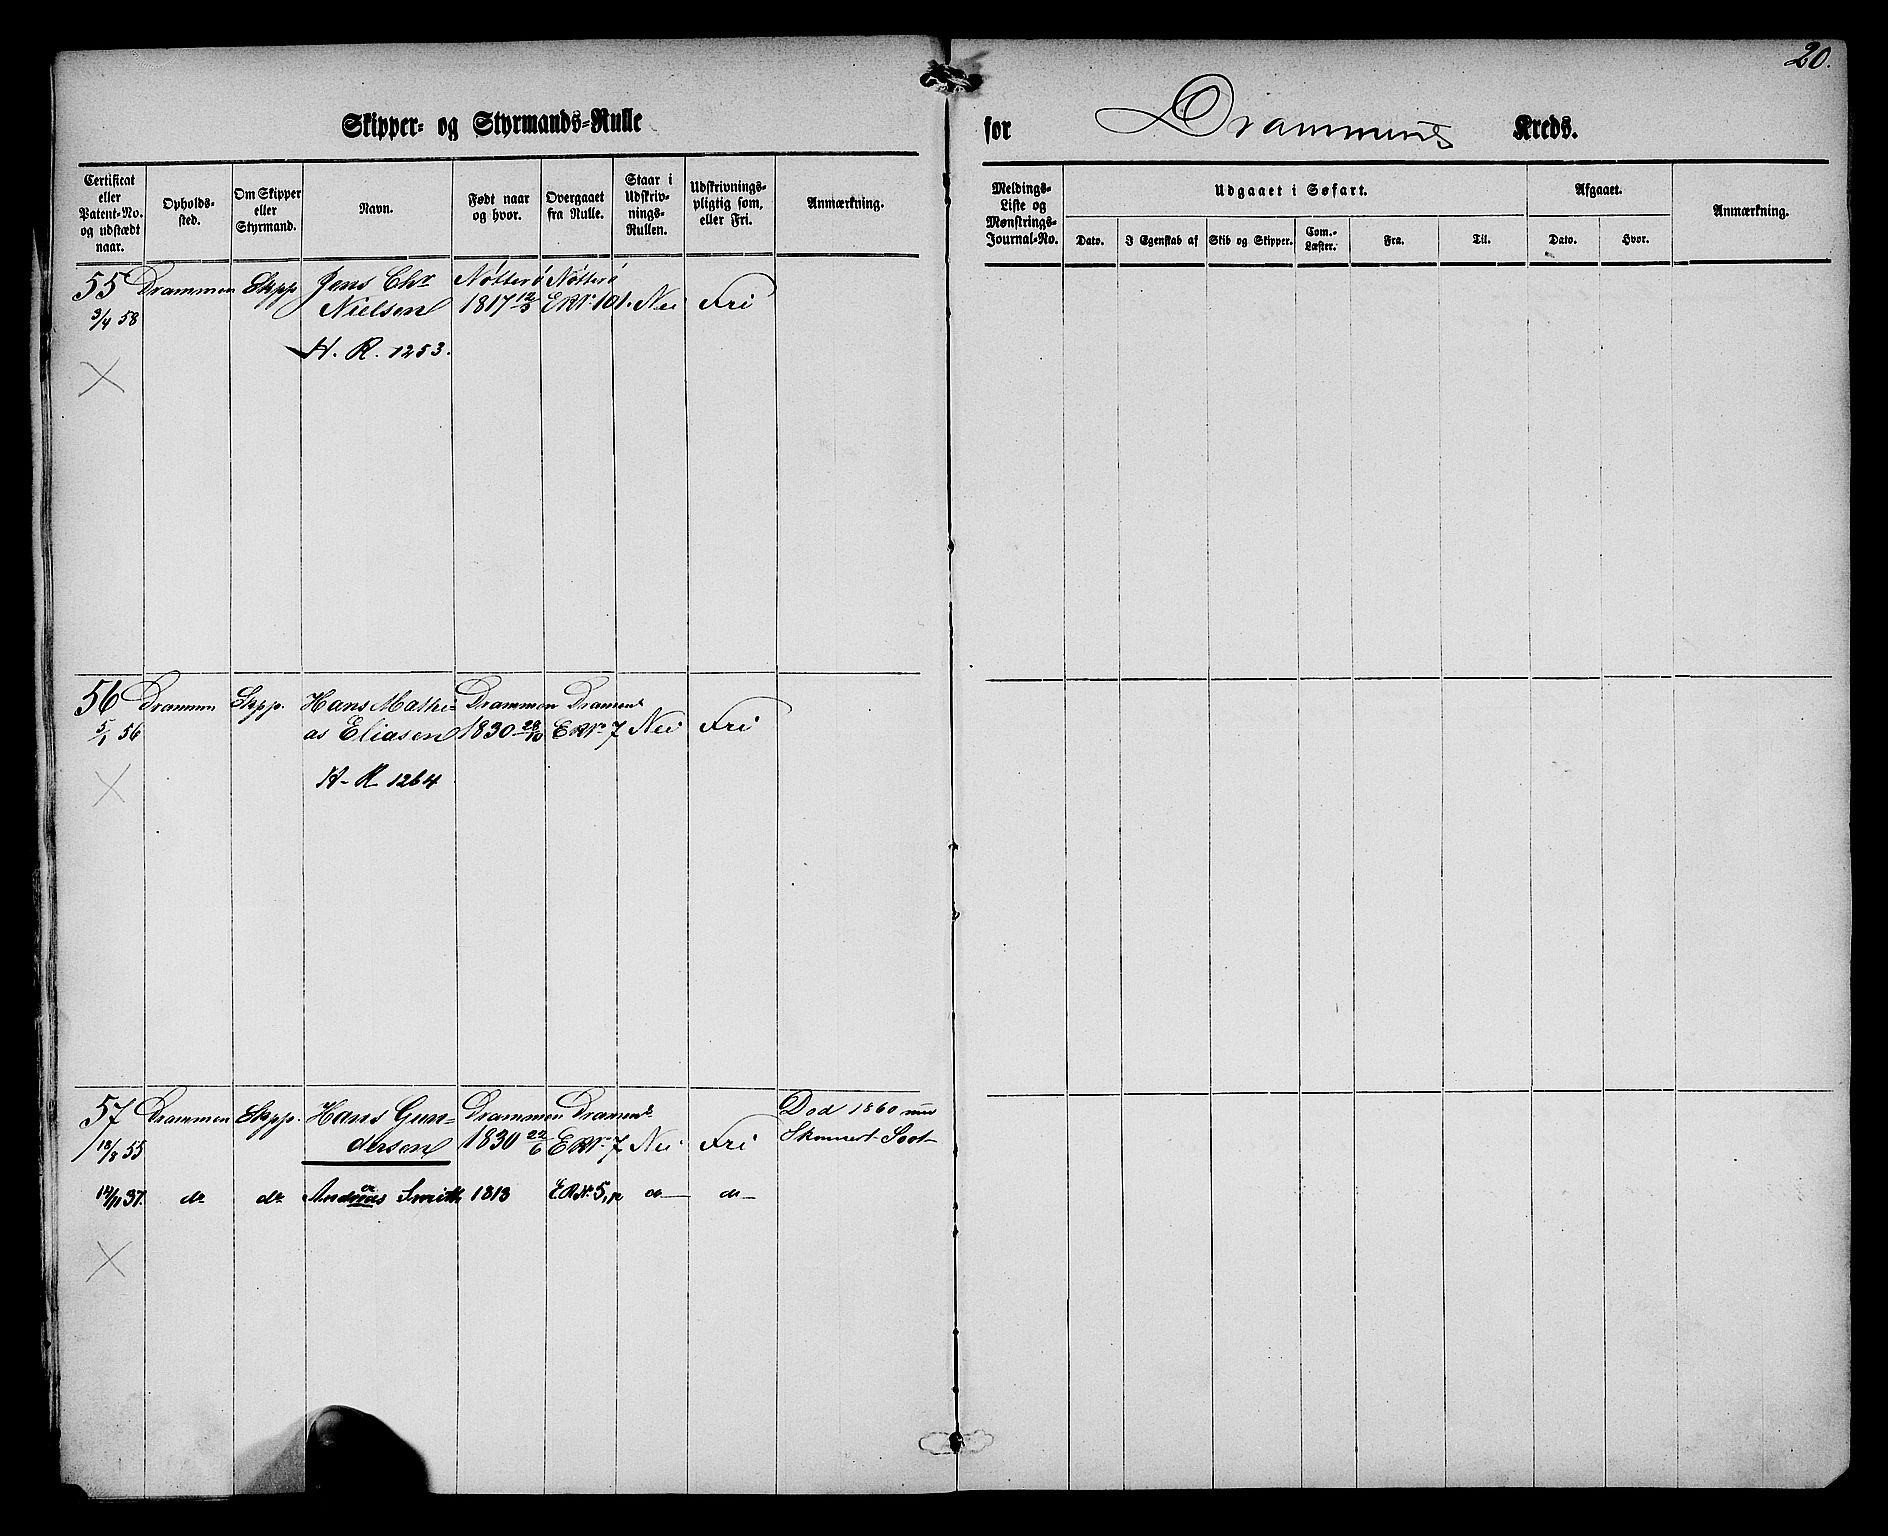 20.
Skipper- og Styrmands-Rulle
for Drammens Kreds.
Certificat eller Patent-No. og udstædt naar.
Opholds-sted.
Om Skipper eller Styrmand.
Navn.
Født naar og hvor.
Overgaaet fra Rulle.
Staar i Udskriv-nings-Rullen.
Udskrivnings-pligtig som, eller Fri.
Anmærkning.
Meldings-Liste og Mønstrings-Journal-No.
Udgaaet i Søfart.
Dato.
I Egenskab af
Skib og Skipper.
Com.-Læster.
Fra.
Til.
Afgaaet.
Dato.
Hvor.
Anmærkning.
55 Drammen Skpp Jens Chr Nøtterø Nøtterø
3/4 58 Nielsen 1817 12/3 E R No. 101. Nei Fri
H. R. 1253.
56 Drammen Skpp. Hans Mathi- Drammen Dramens
5/1 56 as Eliasen 1830 28/10 E R No. 7 Nei Fri
H-R 1264
57 Drammen Skpp. Hans Gun- Drammen Dramens Død 1860
18/8 55 dersen 1830 22/6 E R No. 7 Nei Fri
12/11 37. do do Andreas Smith 1813 E R No. 5, do do